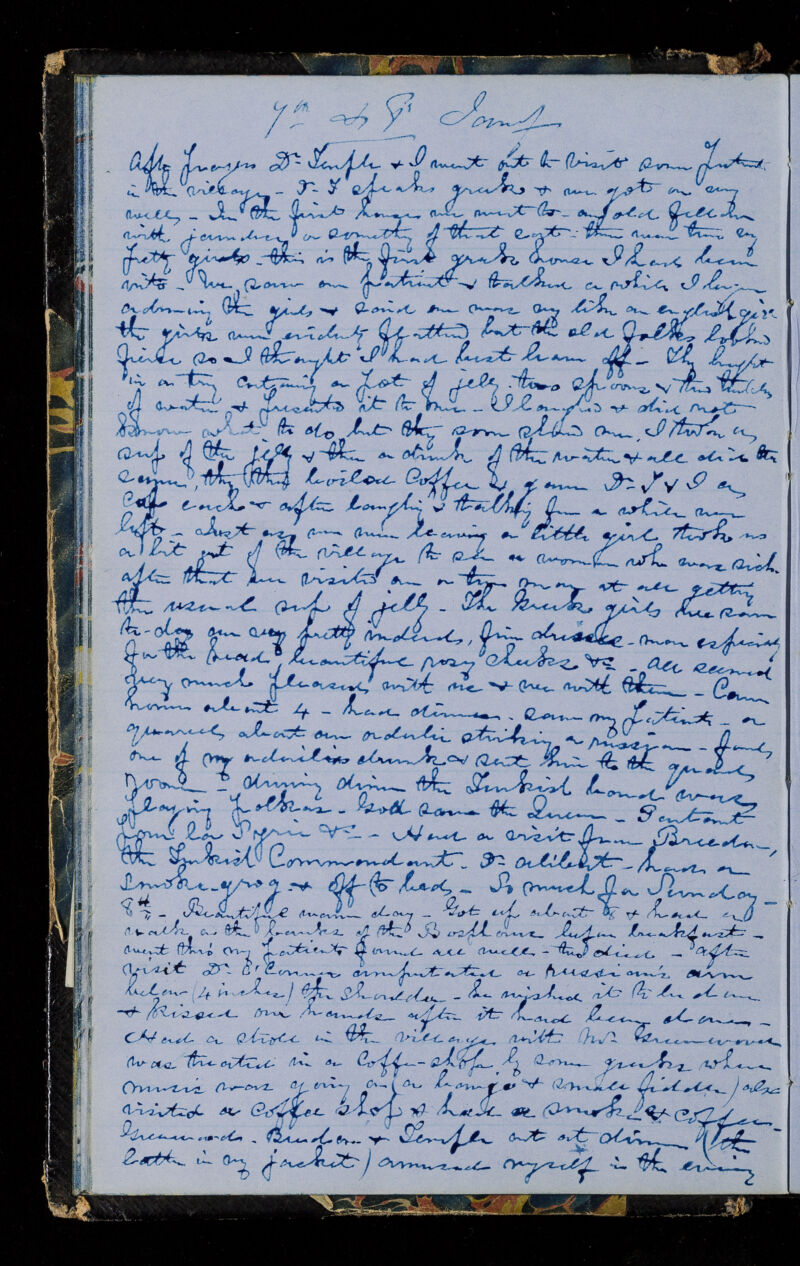 7th & 8th Jany
After prayers Dr Temple & I went out to visit some patients
in the village - Dr T speaks greek & we got on very
well - In the first house we went to - an old fellow
with jaundice or something of that sort: there were two very
pretty girls - this is the first greek house I have been
into - We saw our patient & talked a while I began
admiring the girls & said one was very like an english girl
the girls were evidently flattered but the old folks looked
fierce so I thought I had best leave off - They brought
in a tray containing a pot of jelly two spoons & three tumblers
of water & presented it to me - I laughed & did not
know what to do, but they soon showed me, I took a
sup of the jelly & then a drink of the water & all did the
same, they then boiled Coffee & gave Dr T & I a
cup each & after laughing & talking for a while we
left - Just as we were leaving a little girl took us
a bit out of the village to see a woman who was sick
after that we visited one or two more at all getting
the usual sup of jelly - The Greek girls we saw
to-day are very pretty indeed, fine dresses - more especially
for the head, beautiful rosy cheeks &c - all seemed
very much pleased with us & we with them - Came
home about 4 - had dinner - saw my patients - a
quarrel about an orderly striking a russian - found
one of my orderlies drunk & sent him to the guard
room - during dinner the Turkish band was
playing polkas - God save the Queen - Partant
pour la Syrie &c - Had a visit from Breedon,
the Turkish Commandant - Dr - had a
smoke - grog - & off to bed - So much for Sunday -
8th - Beautiful warm day - Got up about 8 & had a
walk on the banks of the Bosphorus before breakfast -
went thro my patients found all well - two died - after
visit Dr O'Connor amputated a russian's arm
below (4 inches) the shoulder - he wished it to be done
& kissed our hands after it had been done -
Had a stroll in the village with Mr Greenwood
was treated in a Coffee-shop by some greeks where
music was going on (a banjo & small fiddle) also
visited a coffee shop & had a smoke & coffee -
Greenwood - Breedon & Temple out at dinner (the
latter in my jacket) amused myself in the evening